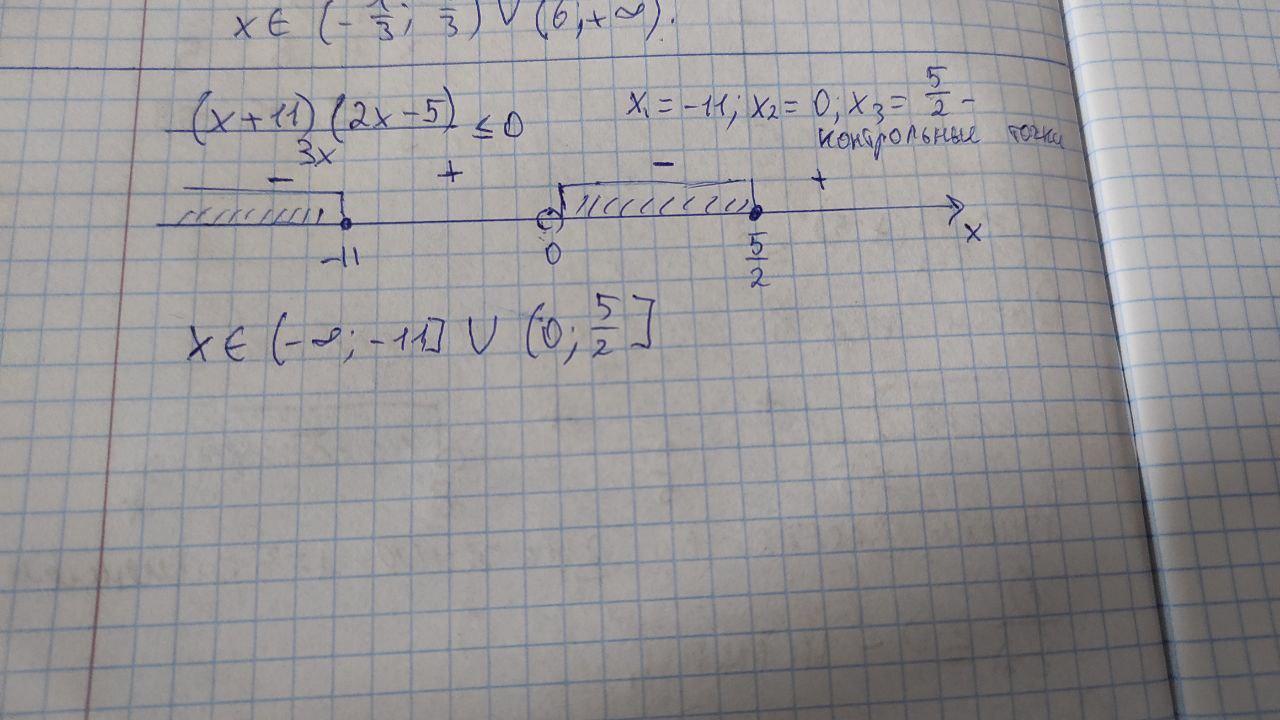 x ∈ (-1/3; 1/3) ∪ (6; +∞).
(x+11)(2x-5)/3x ≤ 0
x₁ = -11; x₂ = 0; x₃ = 5/2 -
контрольные точки
- + - +
-11 0 5/2 x
x ∈ (-∞; -11] ∪ (0; 5/2]